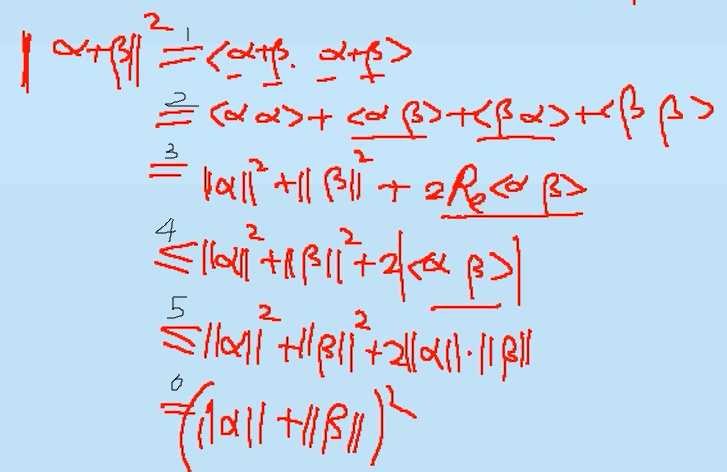 ‖α+β‖² =¹ <α+β. α+β>
=² <α α>+<α β>+<β α>+<β β>
=³ ‖α‖²+‖β‖²+2Re<α β>
≤⁴ ‖α‖²+‖β‖²+2|<α β>|
≤⁵ ‖α‖²+‖β‖²+2‖α‖·‖β‖
=⁶ (‖α‖+‖β‖)²